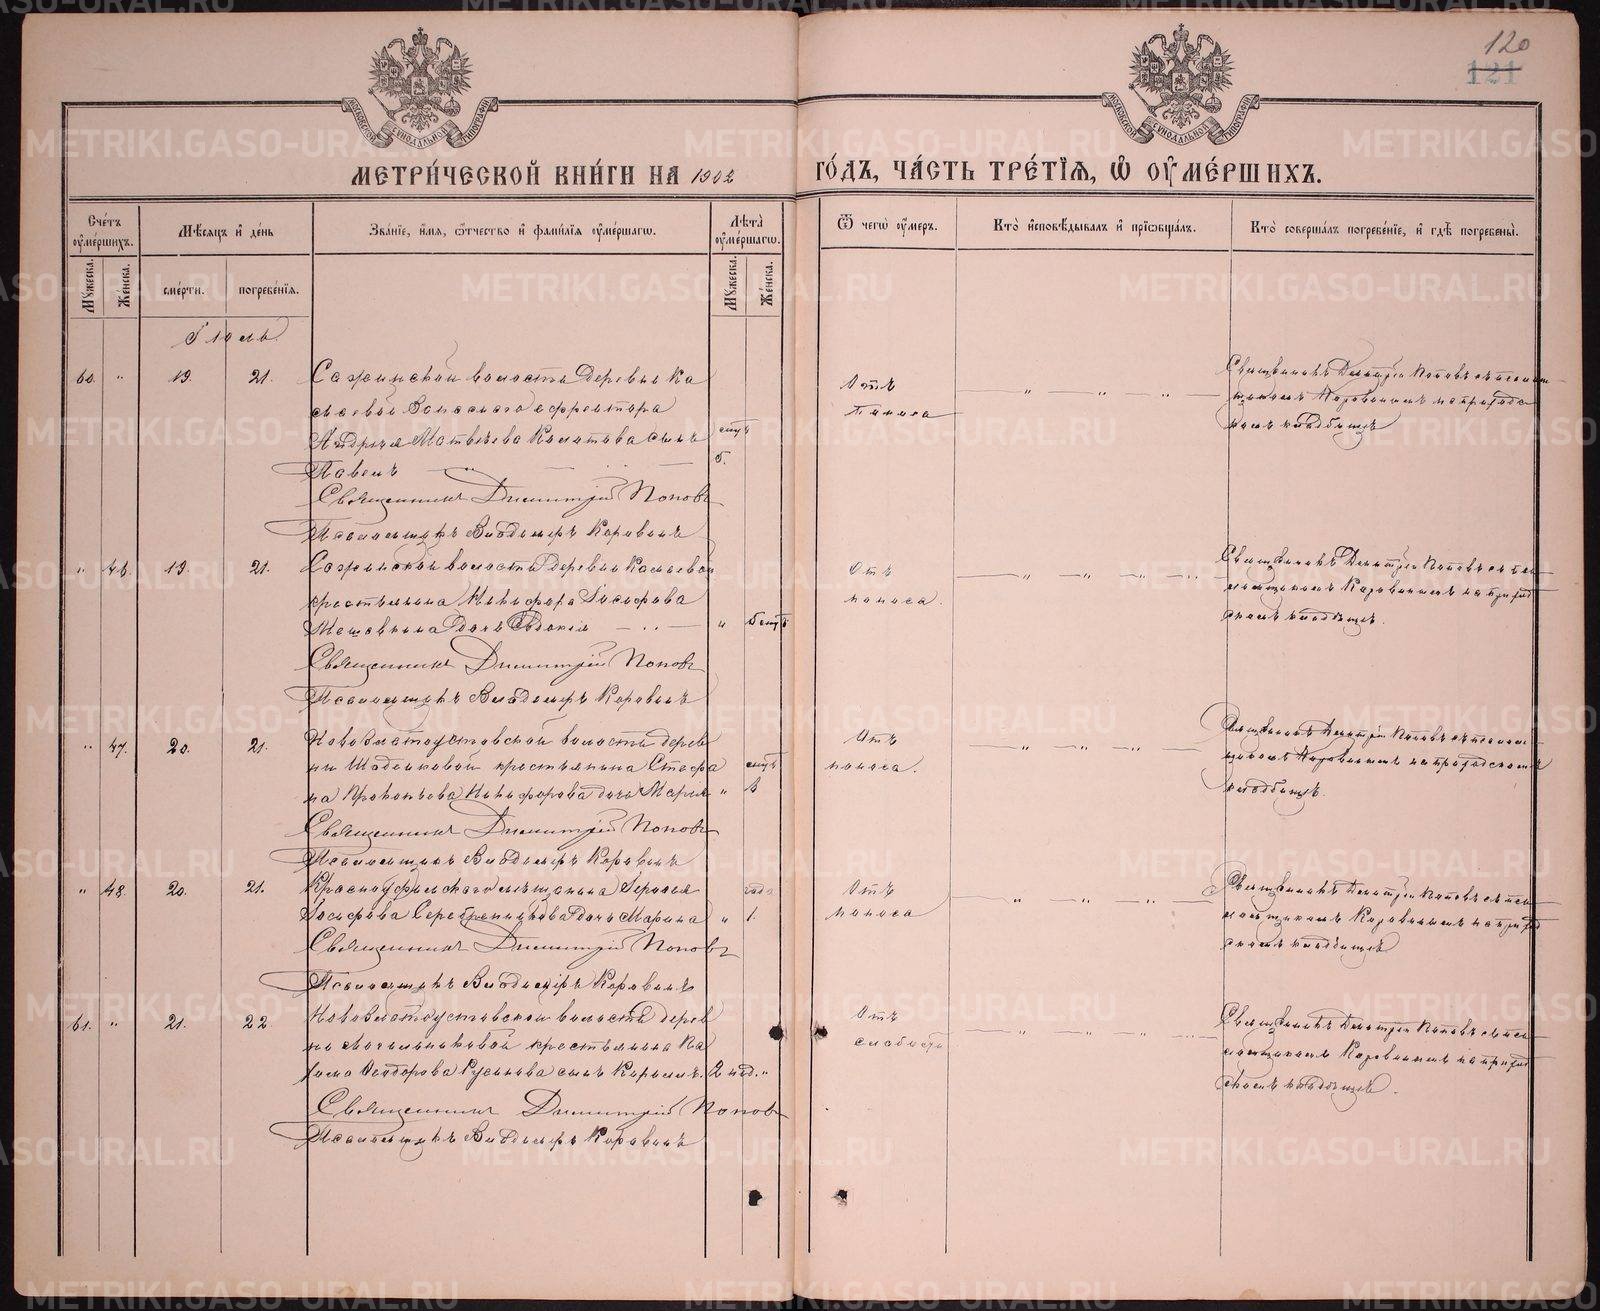 120
121
МОСКОВСКОЙ СѴНОДАЛЬНОЙ ТИПОГРАФІИ
МОСКОВСКОЙ СѴНОДАЛЬНОЙ ТИПОГРАФІИ
МЕТРИ́ЧЕСКОЙ КНИ́ГИ НА 1902 ГО́ДЪ, ЧА́СТЬ ТРЕ́ТІѦ, Ѡ҆ ОУ҆МЕ́РШИХЪ.
Сче́тъ оу҆ме́ршихъ.
Мꙋжеска.
Же́нска.
Мѣ́сяцъ и҆ де́нь
сме́рти.
погребе́нїя.
Зва́нїе, и҆́мя, ѻ҆́тчество и҆ фами́лїя оу҆ме́ршагѡ.
Лѣ́та оу҆ме́ршагѡ.
Мꙋжеска.
Же́нска.
Ѿ чегѡ̀ оу҆́меръ.
Кто̀ и҆сповѣ́дывалъ и҆ прїѡбща́лъ.
Кто̀ соверша́лъ погребе́нїе, и҆ гдѣ̀ погребены̀.
Іюль
60. " 19. 21. Сажинской волости деревни Ка
сьевой Запаснаго ефрейтора
Андрея Матвѣева сынъ
Павелъ
Священникъ Димитрій Поповъ
Псаломщикъ Владиміръ Коровинъ
Отъ
поноса
Священникъ Димитрій Поповъ съ псалом
щикомъ Коровинымъ на приходс
комъ кладбищѣ
" 46. 19. 21. Сажинской волости деревни Касьевой
крестьянина Никифора Іосифова
дочь Евдокія "
Священникъ Димитрій Поповъ
Псаломщикъ Владиміръ Коровинъ
Отъ
поноса.
Священникъ Димитрій Поповъ съ пса
ломщикомъ Коровинымъ на приход
скомъ кладбищѣ.
" 47. 20. 21. Новозлатоустовской волости дерев
ни крестьянина Стефа
на Прокопьева Никифорова дочь Марія "
Священникъ Димитрій Поповъ
Псаломщикъ Владиміръ Коровинъ
Отъ
поноса.
Священникъ Димитрій Поповъ съ псалом
щикомъ Коровинымъ на приходскомъ
кладбищѣ.
" 48. 20. 21. Красноуфимского мѣщанина
Іосифова Серебренникова дочь Марина " года 1.
Священникъ Димитрій Поповъ
Псаломщикъ Владиміръ Коровинъ
Отъ
поноса
Священникъ Димитрій Поповъ съ пса
ломщикомъ Коровинымъ на приход
скомъ кладбищѣ
61. " 21. 22. Новозлатоустовской волости дерев
ни крестьянина Па
хома сынъ Кириллъ. 2 нед. "
Священникъ Димитрій Поповъ
Псаломщикъ Владиміръ Коровинъ
Отъ
слабости
Священникъ Димитрій Поповъ съ пса
ломщикомъ Коровинымъ на приход
скомъ кладбищѣ.
METRIKI.GASO-URAL.RU